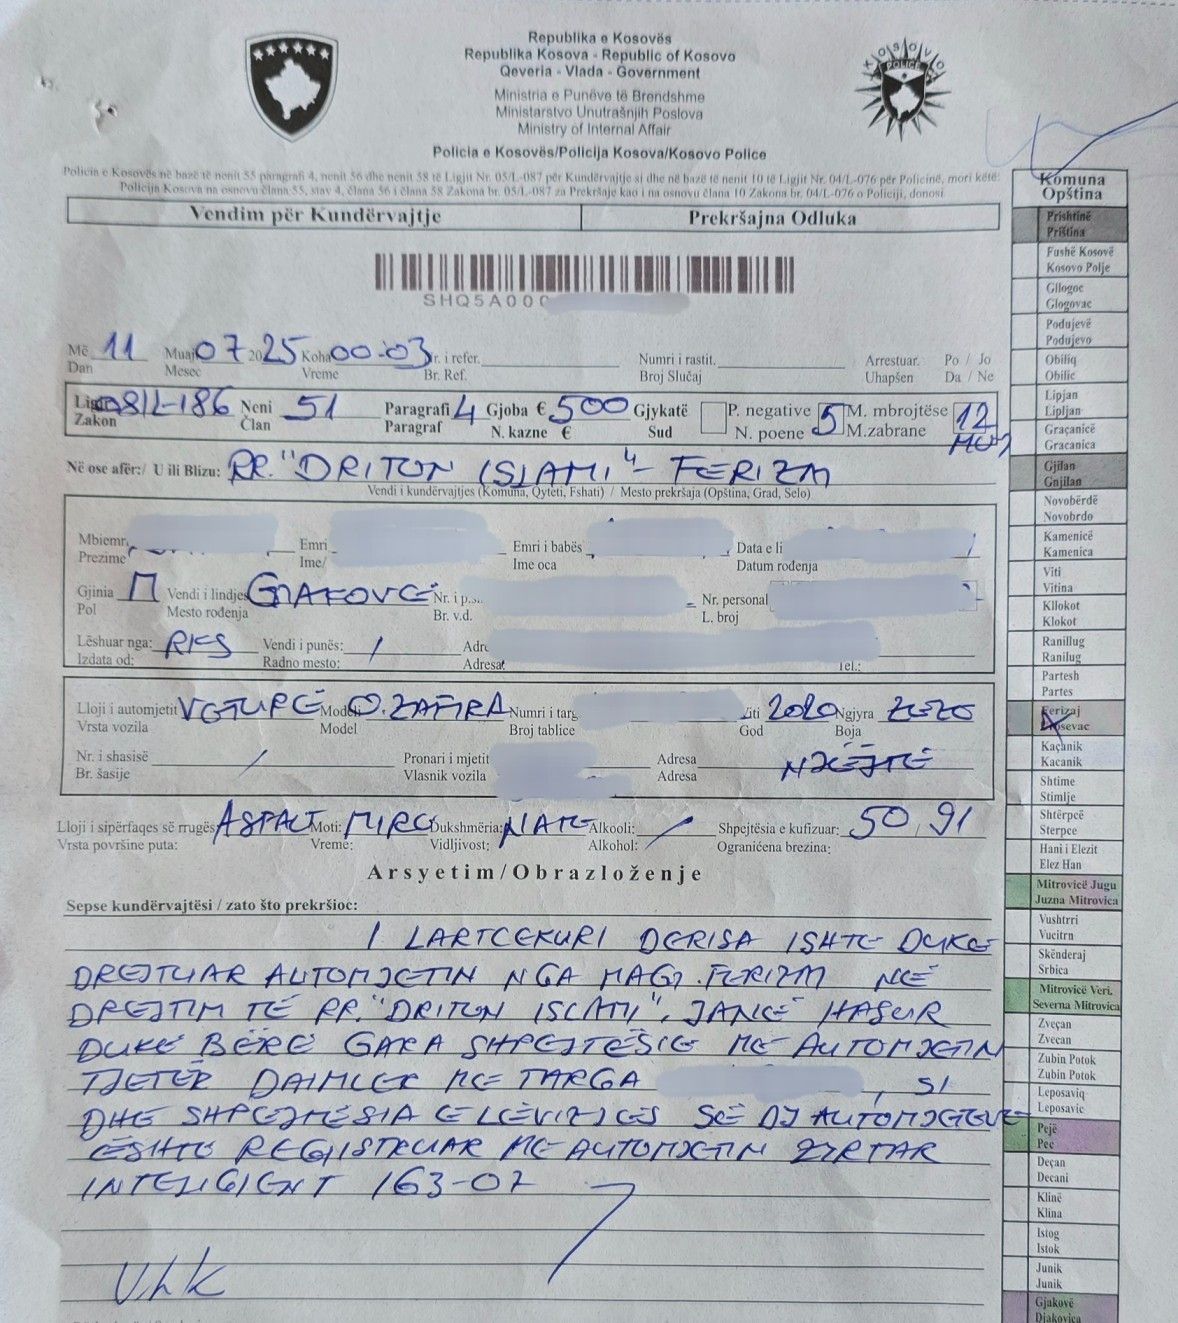 Republika e Kosovës
Republika Kosova - Republic of Kosovo
Qeveria - Vlada - Government
Ministria e Punëve të Brendshme
Ministarstvo Unutrašnjih Poslova
Ministry of Internal Affair
Policia e Kosovës/Policija Kosova/Kosovo Police
KOSOVO
POLICE
Policia e Kosovës në bazë të nenit 55 paragrafi 4, nenit 56 dhe nenit 58 të Ligjit Nr. 05/L-087 për Kundërvajtje si dhe në bazë të nenit 10 të Ligjit Nr. 04/L-076 për Policinë, mori këtë:
Policija Kosova na osnovu člana 55, stav 4, člana 56 i člana 58 Zakona br. 05/L-087 za Prekršaje kao i na osnovu člana 10 Zakona br. 04/L-076 o Policiji, donosi
Vendim për Kundërvajtje Prekršajna Odluka
SHQ5A000
Më 11 Muaj 07 2025 Koha 00:03 Nr. i refer. Numri i rastit. Arrestuar. Po / Jo
Dan Mesec Vreme Br. Ref. Broj Slučaj Uhapšen Da / Ne
Ligji 08/L-186 Neni 51 Paragrafi 4 Gjoba € 500 Gjykatë P. negative 5 M. mbrojtëse 12
Zakon Član Paragraf N. kazne € Sud N. poene M.zabrane MUJ
Në ose afër:/ U ili Blizu: RR. "DRITON ISLAMI" - FERIZAJ
Vendi i kundërvajtjes (Komuna, Qyteti, Fshati) / Mesto prekršaja (Opština, Grad, Selo)
Mbiemr Emri Emri i babës Data e li
Prezime Ime/ Ime oca Datum rođenja
Gjinia M Vendi i lindjes GJAKOVË Nr. i p. Nr. personal
Pol Mesto rođenja Br. v.d. L. broj
Lëshuar nga: RKS Vendi i punës: / Adr
Izdata od: Radno mesto: Adresa Tel.:
Lloji i automjetit VETURË Modeli O.ZAFIRA Numri i targ Viti 2020 Ngjyra ZEZË
Vrsta vozila Model Broj tablice God Boja
Nr. i shasisë / Pronari i mjetit Adresa NJËJTË
Br. šasije Vlasnik vozila Adresa
Lloji i sipërfaqes së rrugës ASFALT Moti: MIRË Dukshmëria: NATË Alkooli: / Shpejtësia e kufizuar: 50/91
Vrsta površine puta: Vreme: Vidljivost: Alkohol: Ograničena brezina:
Arsyetim/Obrazloženje
Sepse kundërvajtësi / zato što prekršioc:
I LARTCEKURI DERISA ISHTE DUKE
DREJTUAR AUTOMJETIN NGA MAGJ. FERIZAJ NË
DREJTIM TË RR. "DRITON ISLAMI", JANË HASUR
DUKË BËRË GARA SHPEJTËSIE ME AUTOMJETIN
TJETËR DAIMLER ME TARGA , SI
DHE SHPEJTËSIA E LËVIZJES SË DY AUTOMJETEVE
ËSHTË REGJISTRUAR ME AUTOMJETIN ZYRTAR
INTELIGJENT 163-07
Komuna
Opština
Prishtinë
Priština
Fushë Kosovë
Kosovo Polje
Gllogoc
Glogovac
Podujevë
Podujevo
Obiliq
Obilic
Lipjan
Lipljan
Graçanicë
Gracanica
Gjilan
Gnjilan
Novobërdë
Novobrdo
Kamenicë
Kamenica
Viti
Vitina
Kllokot
Klokot
Ranillug
Ranilug
Partesh
Partes
Ferizaj
Urosevac
Kaçanik
Kacanik
Shtime
Stimlje
Shtërpcë
Sterpce
Hani i Elezit
Elez Han
Mitrovicë Jugu
Juzna Mitrovica
Vushtrri
Vucitrn
Skënderaj
Srbica
Mitrovicë Veri.
Severna Mitrovica
Zveçan
Zvecan
Zubin Potok
Zubin Potok
Leposaviq
Leposavic
Pejë
Pec
Deçan
Decani
Klinë
Klina
Istog
Istok
Junik
Junik
Gjakovë
Djakovica